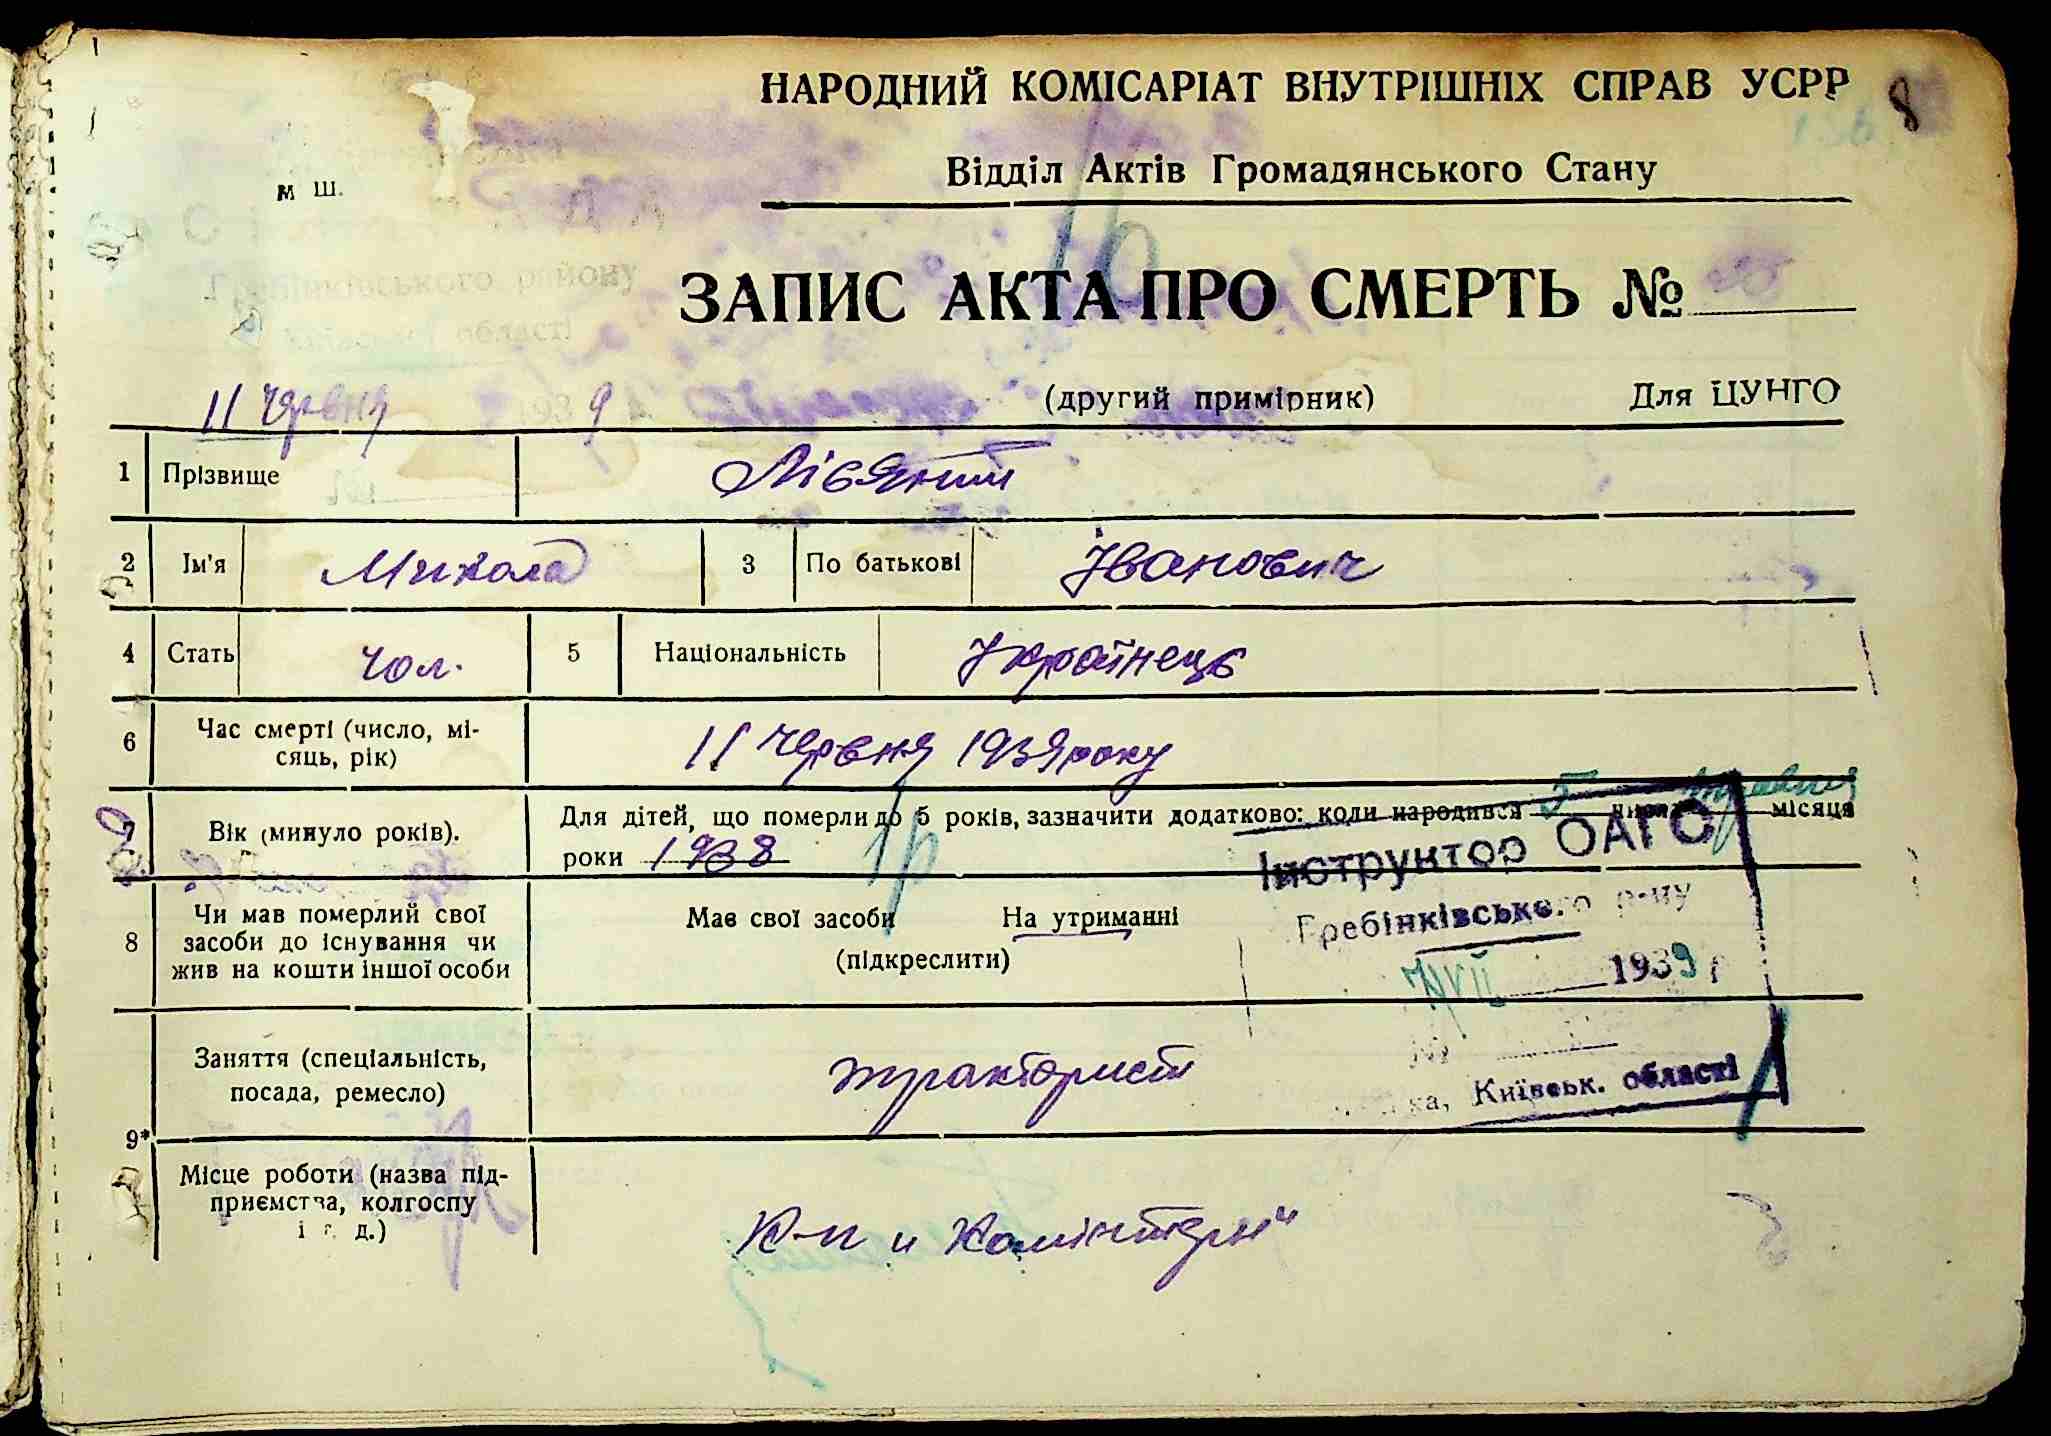 НАРОДНИЙ КОМІСАРІАТ ВНУТРІШНІХ СПРАВ УСРР
8
Відділ Актів Громадянського Стану
м ш.
Гребінківського району
області
ЗАПИС АКТА ПРО СМЕРТЬ №
11 червня 1939
(другий примірник) Для ЦУНГО
1 Прізвище Лів'яний
2 Ім'я Микола 3 По батькові Іванович
4 Стать чол. 5 Національність Українець
6 Час смерті (число, мі-
сяць, рік) 11 червня 1939 року
7 Вік (минуло років). Для дітей, що померли до 5 років, зазначити додатково: коли народився травня місяця
роки 1938 1р
Інструктор ОАГС
Гребінківського р-ну
7/VII 1939 р
Київськ. області
8 Чи мав померлий свої
засоби до існування чи
жив на кошти іншої особи
Має свої засоби На утриманні
(підкреслити)
9*
Заняття (спеціальність,
посада, ремесло) тракторист
Місце роботи (назва під-
приємства, колгоспу
і т. д.)
К-п „Комінтерн"